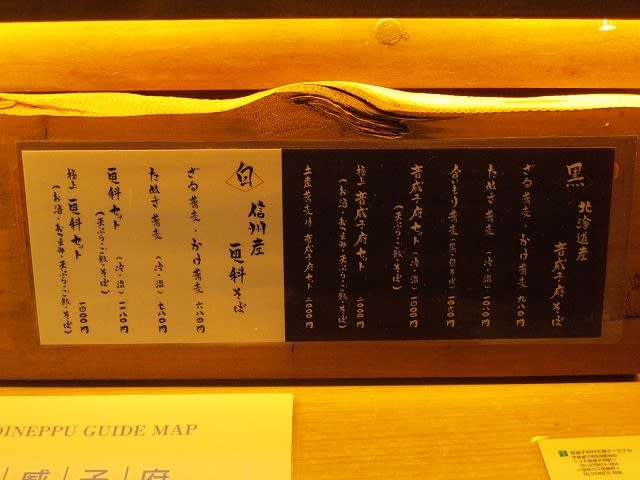 黒 北海道産
音威子府そば
ざる蕎麦・かけ蕎麦 九八〇円
たぬき蕎麦 (冷・温)
音威子府セット
(天ぷら・ご飯・そば)
極上 音威子府セット 二〇〇〇円
(お酒・おつまみ・天ぷら・ご飯・そば)
土産蕎麦付 音威子府セット 二〇〇〇円
白 信州産
更科そば
ざる蕎麦・かけ蕎麦 六八〇円
たぬき蕎麦 (冷・温) 七八〇円
更科セット 一一八〇円
(天ぷら・ご飯・そば)
極上 更科セット
(お酒・おつまみ・天ぷら・ご飯・そば)
OINEPPU GUIDE MAP
威子府